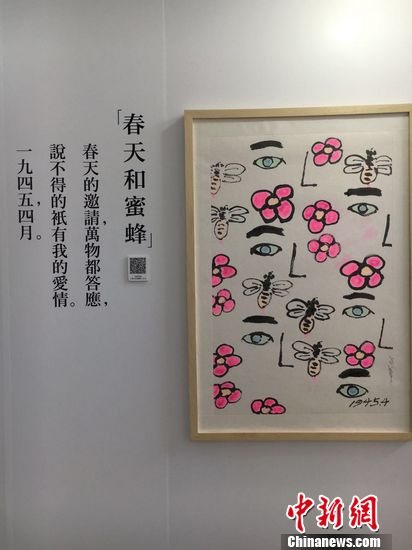 「春天和蜜蜂」
春天的邀請，萬物都答應，
說不得的祇有我的愛情。
一九四五，四月。
1945.4
中新網
Chinanews.com